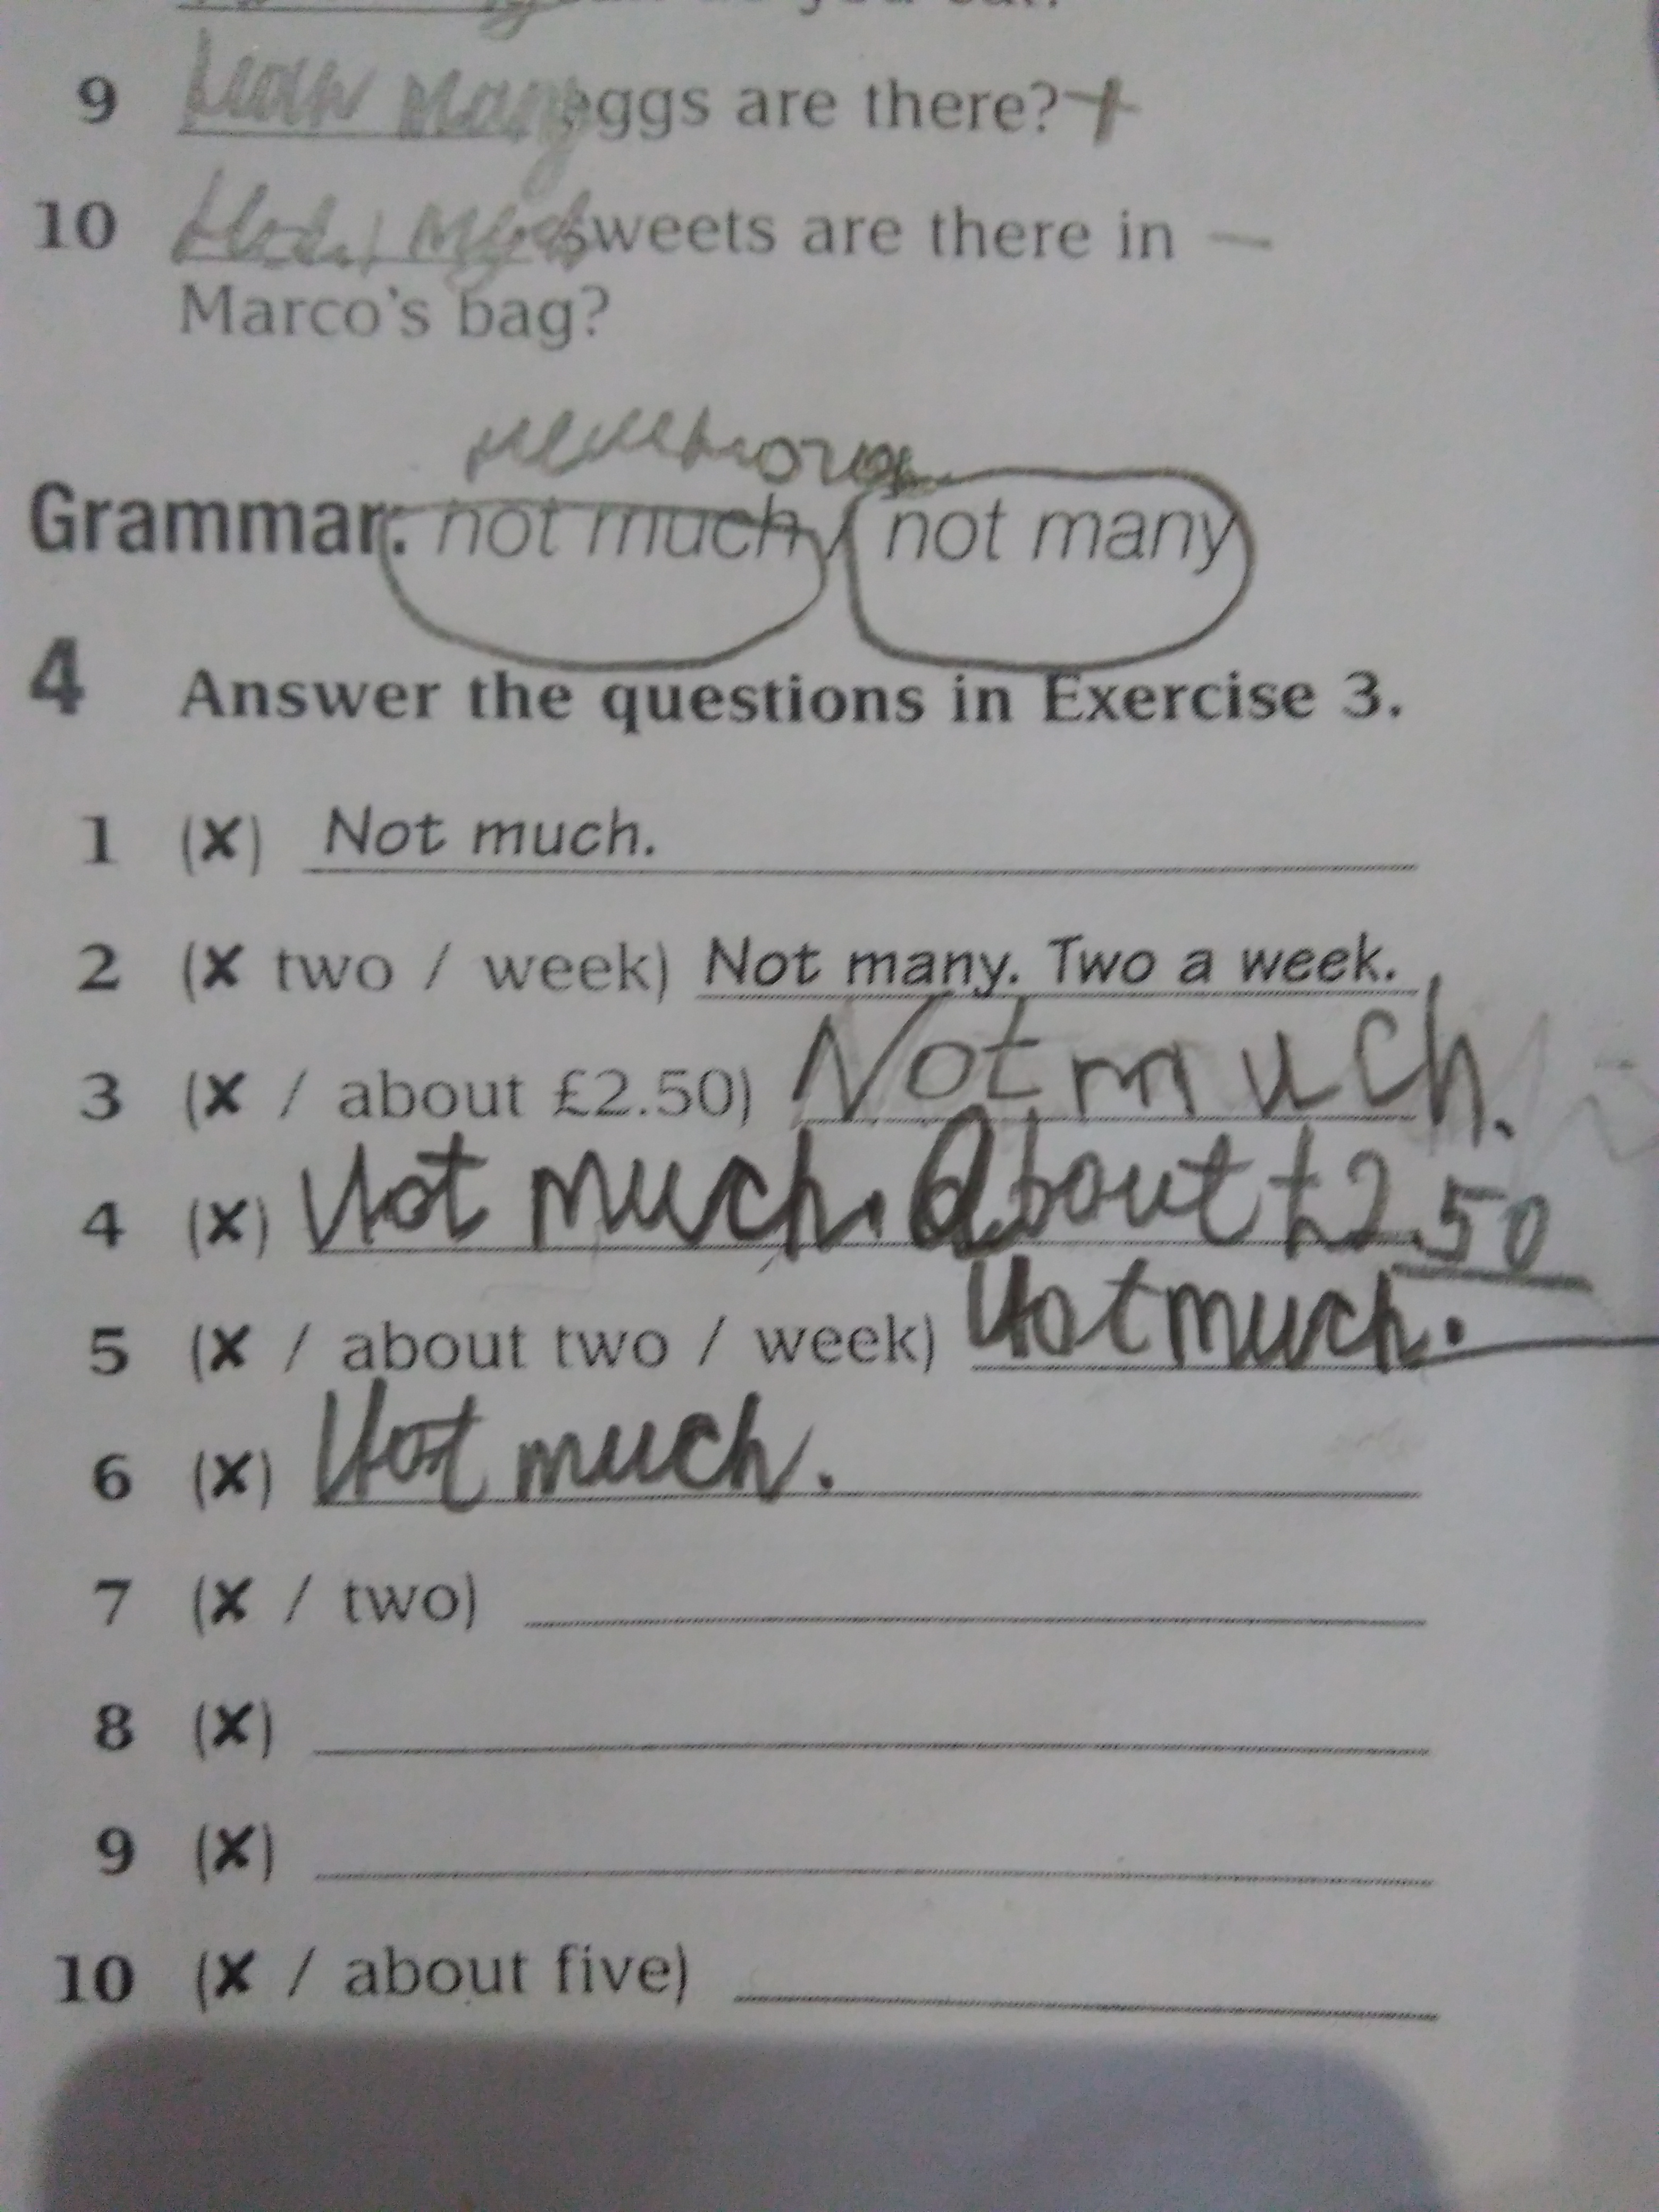 you eat?
9 How many eggs are there? +
10 sweets are there in –
Marco's bag?
немного
Grammar: not much / not many
4 Answer the questions in Exercise 3.
1 (✗) Not much.
2 (✗ two / week) Not many. Two a week.
3 (✗ / about £2.50) Not much.
4 (✗) Not much. About £2.50
5 (✗ / about two / week) Not much.
6 (✗) Not much.
7 (✗ / two)
8 (✗)
9 (✗)
10 (✗ / about five)